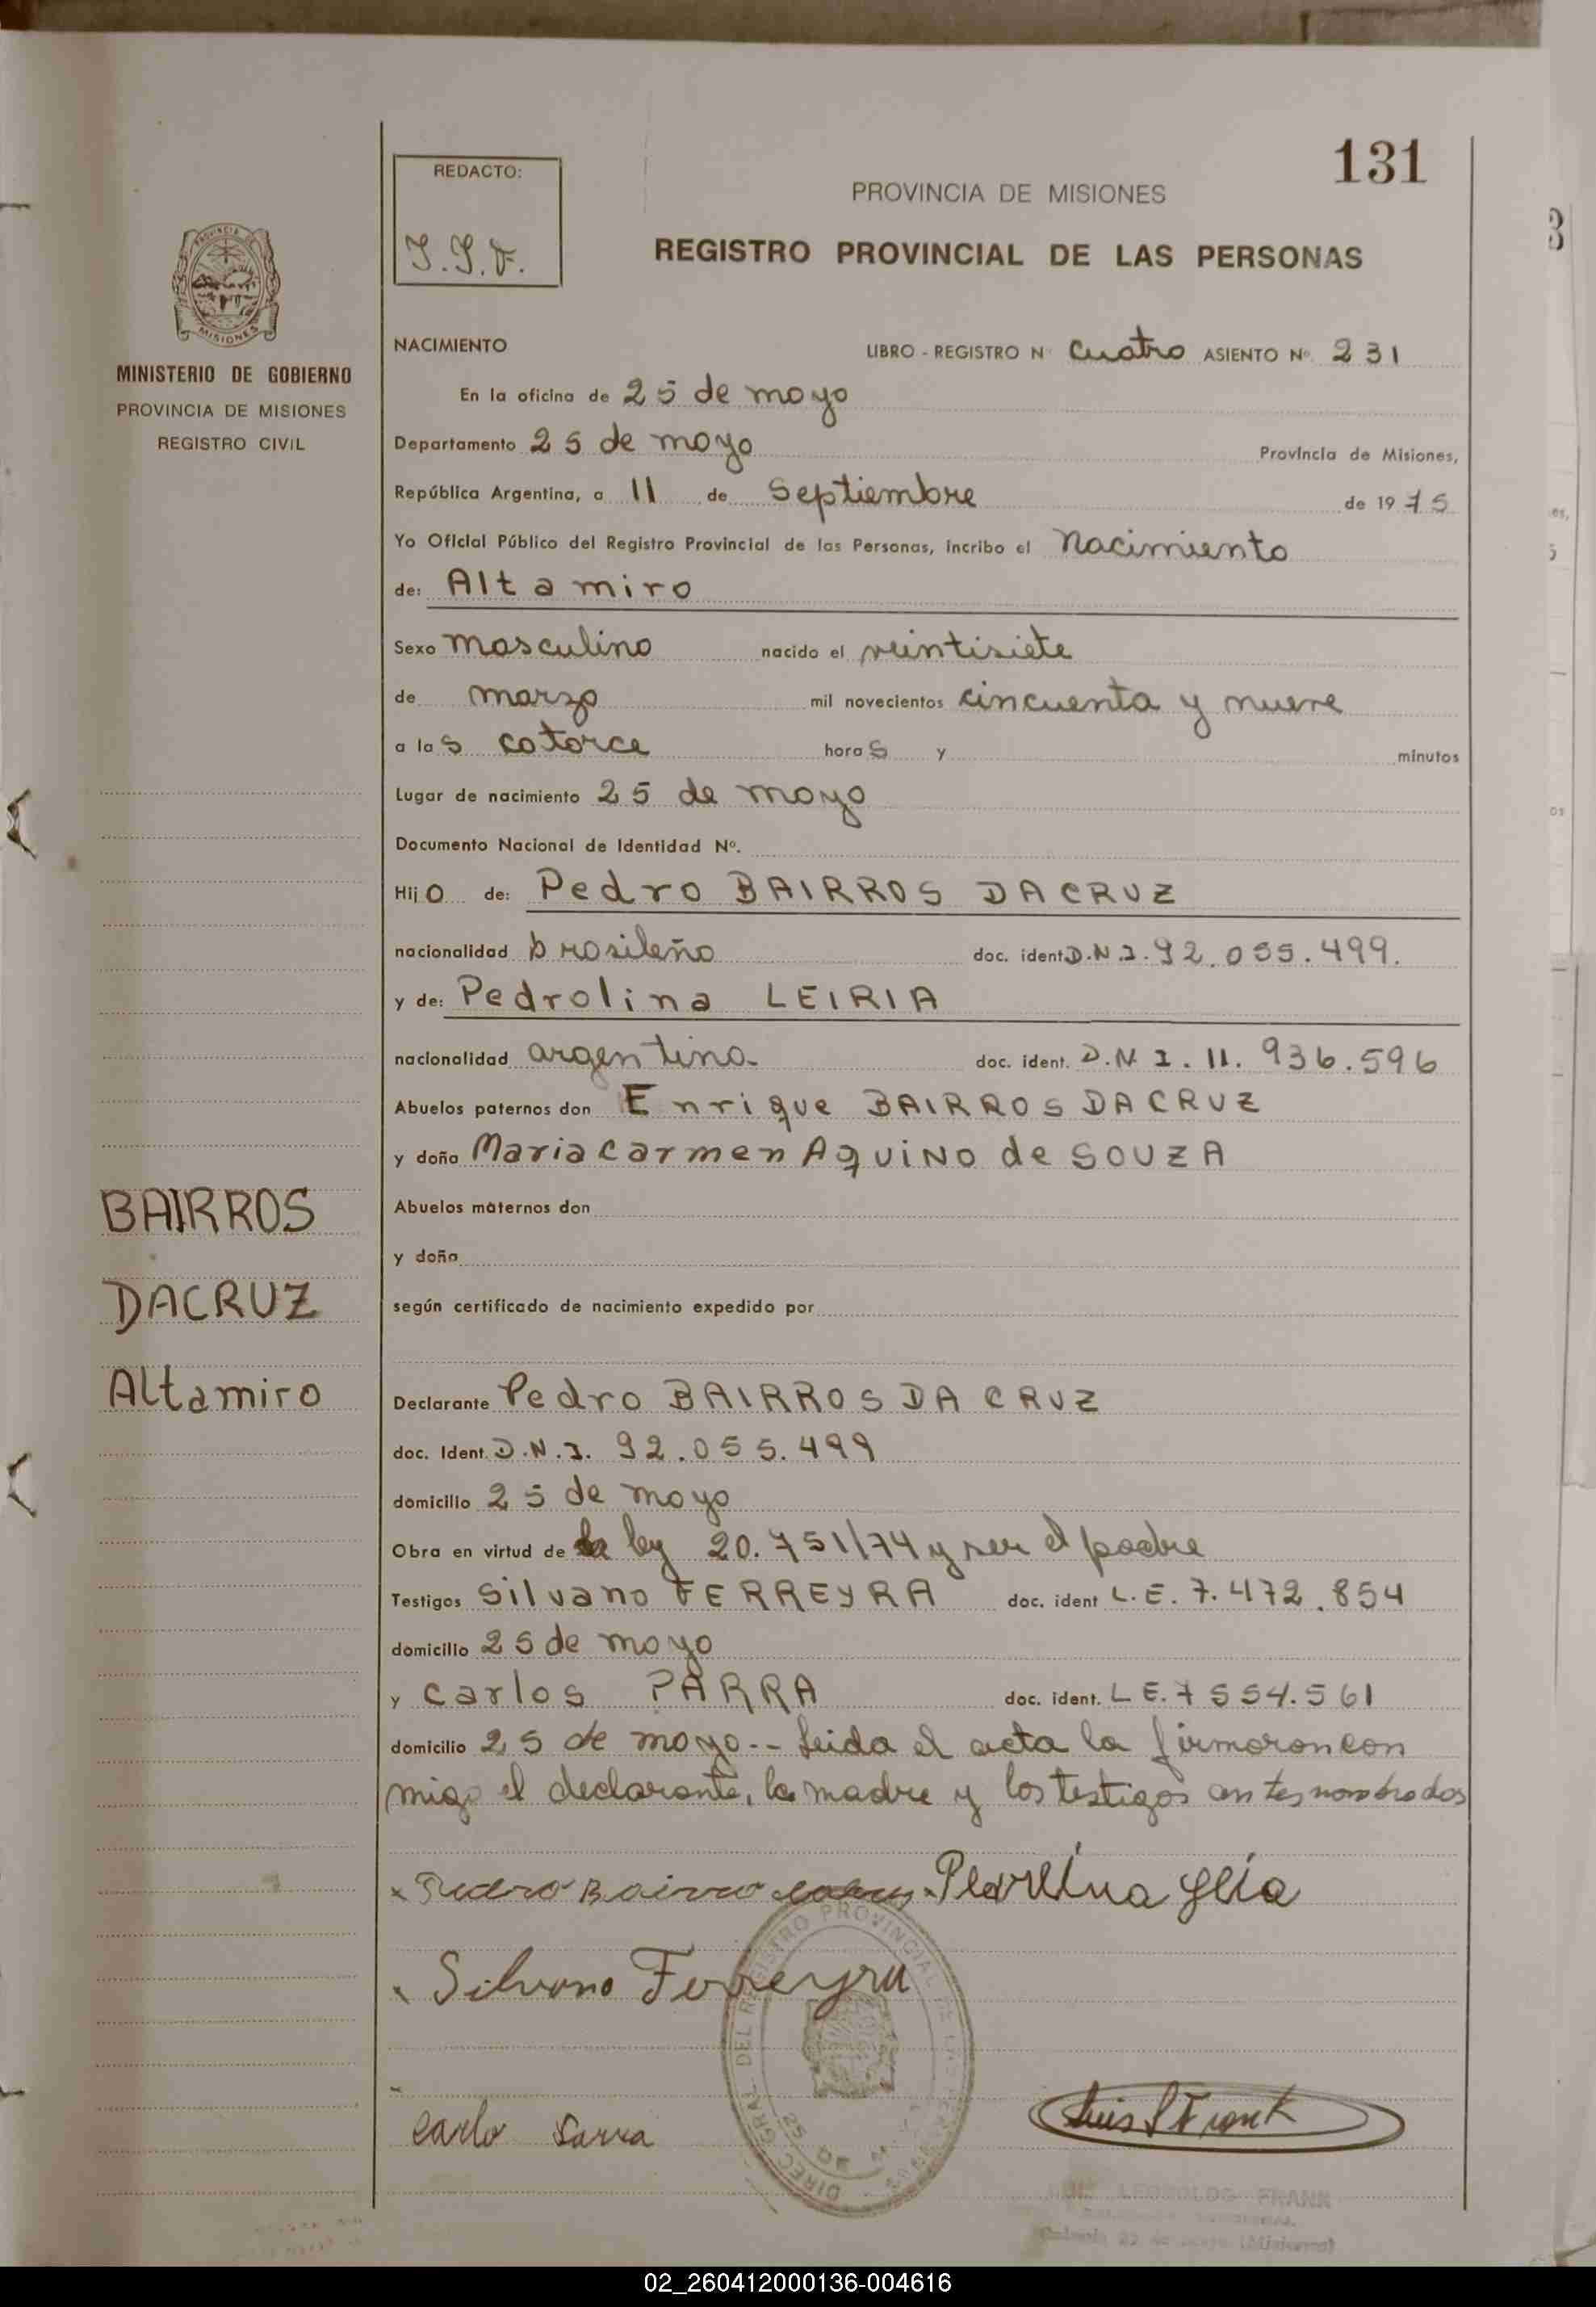 131
REDACTO:
PROVINCIA DE MISIONES
REGISTRO PROVINCIAL DE LAS PERSONAS
PROVINCIA DE
MISIONES
MINISTERIO DE GOBIERNO
PROVINCIA DE MISIONES
REGISTRO CIVIL
NACIMIENTO LIBRO - REGISTRO Nº Cuatro ASIENTO Nº. 231
En la oficina de 25 de mayo
Departamento 25 de mayo Provincia de Misiones,
República Argentina, a 11 de Septiembre de 1975
Yo Oficial Público del Registro Provincial de las Personas, incribo el Nacimiento
de: Altamiro
Sexo masculino nacido el veintisiete
de marzo mil novecientos cincuenta y nueve
a las catorce horas y minutos
Lugar de nacimiento 25 de mayo
Documento Nacional de Identidad Nº.
Hijo de: Pedro BAIRROS DACRUZ
nacionalidad brasileño doc. ident D.N.I. 92.055.499.
y de: Pedrolina LEIRIA
nacionalidad argentina- doc. ident. D.N I. 11. 936.596
Abuelos paternos don Enrique BAIRROS DACRUZ
y doña Maria Carmen AQUINO de SOUZA
Abuelos maternos don
y doña
según certificado de nacimiento expedido por
BAIRROS
DACRUZ
Altamiro
Declarante Pedro BAIRROS DA CRUZ
doc. Ident. D.N.I. 92.055.499
domicilio 25 de mayo
Obra en virtud de la ley 20.751/74 y ser el padre
Testigos Silvano FERREYRA doc. ident L.E. 7.472.854
domicilio 25 de mayo
y Carlos PARRA doc. ident. L E. 7 554.561
domicilio 25 de mayo-- Leida el acta la firmaron con
migo el declarante, la madre y los testigos antes nombrados
Pedro Bairro
Silvano Ferreyra
Carlo Parra
Luis L Frank
DIREC. GRAL. DEL REGISTRO PROVINCIAL DE LAS PERSONAS
25 DE MAYO
LEOPOLDO FRANK
02_260412000136-004616